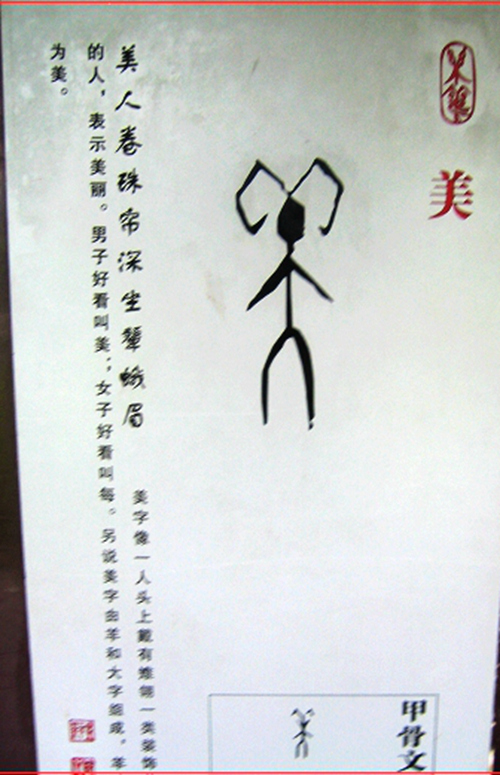 美
美人卷珠帘深坐颦蛾眉
美字像一人头上戴有雉翎一类装饰
的人，表示美丽。男子好看叫美；女子好看叫每。另说美字由羊和大字组成，羊
为美。
甲骨文